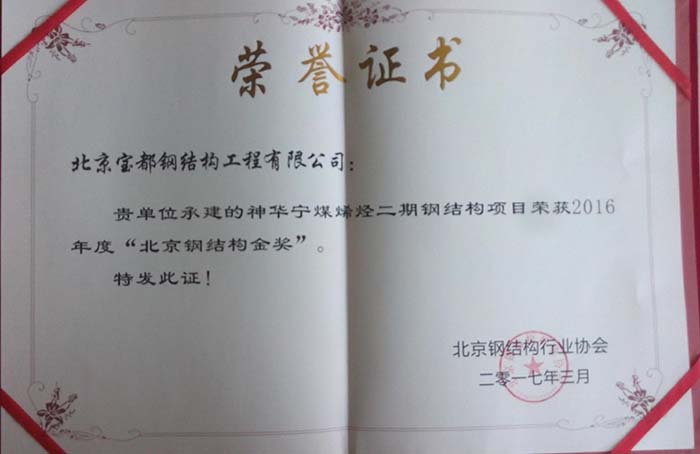 荣誉证书
北京宝都钢结构工程有限公司：
贵单位承建的神华宁煤烯烃二期钢结构项目荣获2016
年度“北京钢结构金奖”。
特发此证！
北京钢结构行业协会
二零一七年三月